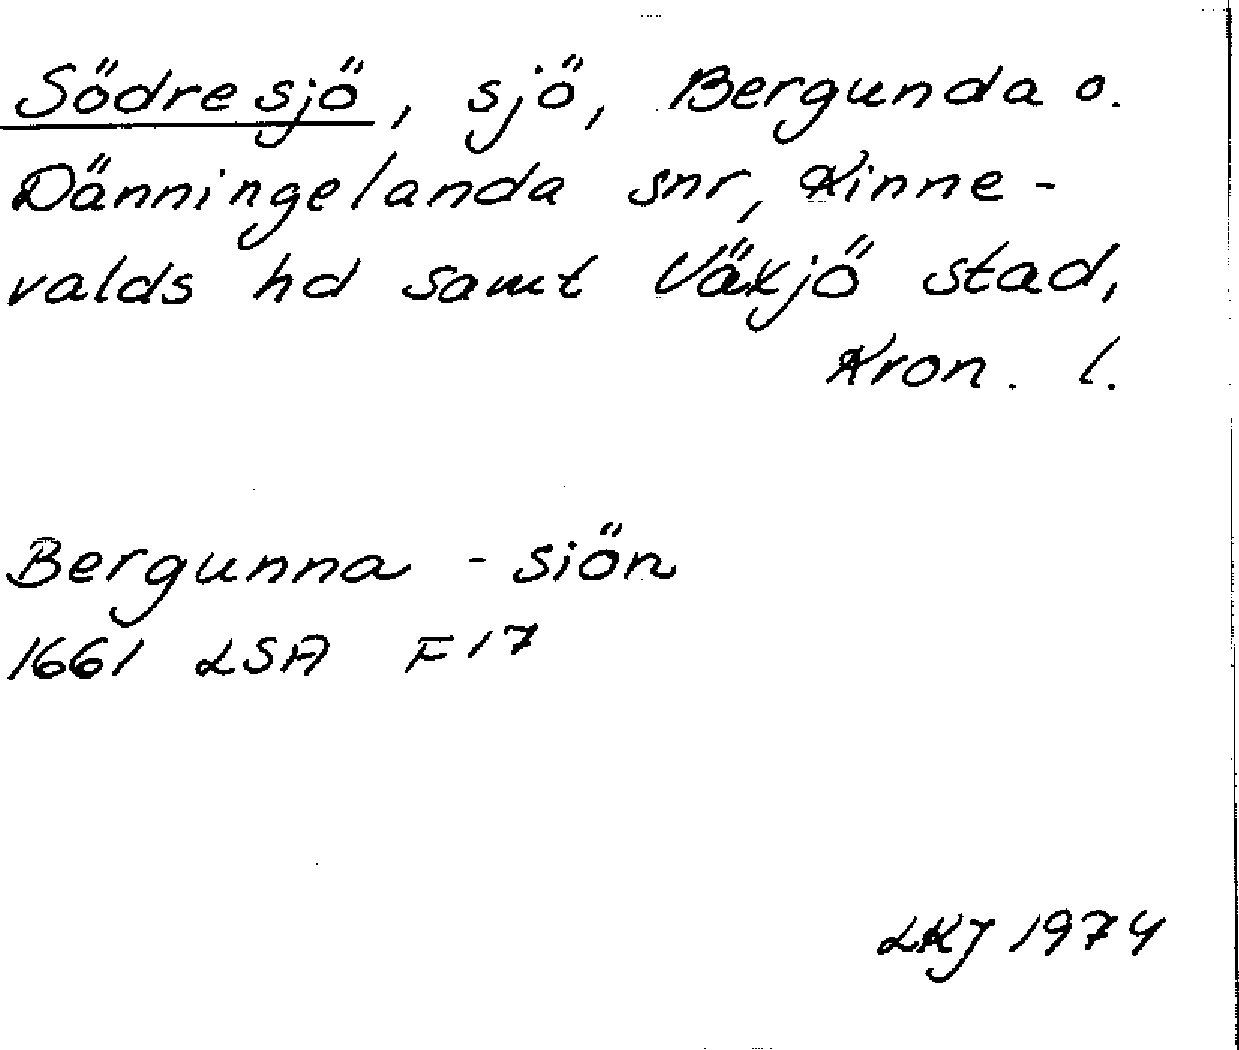 Södresjö, sjö, Bergunda o.
Dänningelanda snr, Kinne-
valds hd samt Växjö stad,
Kron. l.
Bergunna - siön
1661 LSA F 17
LKJ 1974